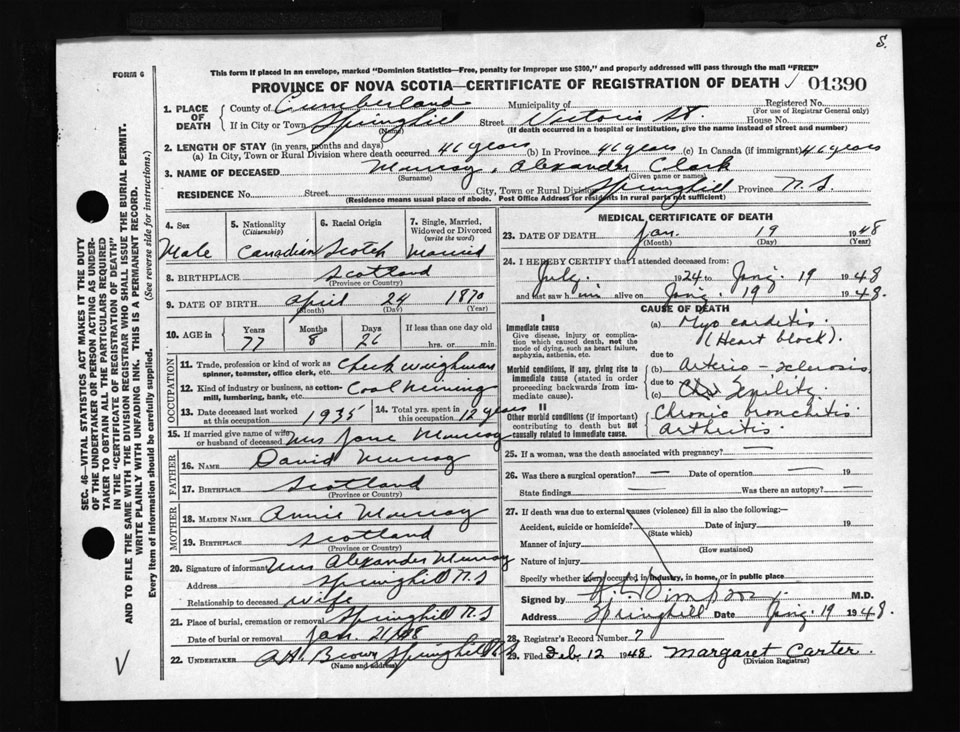 S.
FORM 6
This form if placed in an envelope, marked "Dominion Statistics—Free, penalty for improper use $300," and properly addressed will pass through the mail "FREE"
PROVINCE OF NOVA SCOTIA—CERTIFICATE OF REGISTRATION OF DEATH √ 01390
1. PLACE OF DEATH
County of Cumberland Municipality of Registered No.
(For use of Registrar General only)
If in City or Town Springhill Street Victoria St. House No.
(Name) (If death occurred in a hospital or institution, give the name instead of street and number)
2. LENGTH OF STAY (in years, months and days)
(a) In City, Town or Rural Division where death occurred 46 years (b) In Province 46 years (c) In Canada (if immigrant) 46 years
3. NAME OF DECEASED Murray, Alexander Clark
(Surname) (Given name or names)
RESIDENCE No. Street City, Town or Rural Division Springhill Province N.S.
(Residence means usual place of abode. Post Office Address for residents in rural parts not sufficient)
4. Sex Male
5. Nationality (Citizenship) Canadian
6. Racial Origin Scotch
7. Single, Married, Widowed or Divorced (write the word) Married
8. BIRTHPLACE Scotland
(Province or Country)
9. DATE OF BIRTH April 24 1870
(Month) (Day) (Year)
10. AGE in Years Months Days If less than one day old
77 8 26 hrs. or min.
OCCUPATION
11. Trade, profession or kind of work as spinner, teamster, office clerk, etc. Check weighman
12. Kind of industry or business, as cotton-mill, lumbering, bank, etc. Coal Mining
13. Date deceased last worked at this occupation 1935
14. Total yrs. spent in this occupation 12 years
15. If married give name of wife or husband of deceased Mrs Jane Murray
FATHER
16. NAME David Murray
17. BIRTHPLACE Scotland
(Province or Country)
MOTHER
18. MAIDEN NAME Annie Murray
19. BIRTHPLACE Scotland
(Province or Country)
20. Signature of informant Mrs Alexander Murray
Address Springhill N.S
Relationship to deceased wife
21. Place of burial, cremation or removal Springhill N.S
Date of burial or removal Jan. 21/48
22. UNDERTAKER A.H. Brown Springhill N.S
(Name and address)
MEDICAL CERTIFICATE OF DEATH
23. DATE OF DEATH Jan. 19 1948
(Month) (Day) (Year)
24. I HEREBY CERTIFY that I attended deceased from:
July. 1924 to Jan'y. 19 1948
and last saw him alive on Jan'y. 19 1948.
CAUSE OF DEATH
I
Immediate cause
Give disease, injury or complication which caused death, not the mode of dying, such as heart failure, asphyxia, asthenia, etc.
(a) Myo carditis.
(Heart block).
due to
Morbid conditions, if any, giving rise to immediate cause (stated in order proceeding backwards from immediate cause).
(b) Arterio-sclerosis
due to
(c) Senility
II
Other morbid conditions (if important) contributing to death but not causally related to immediate cause.
Chronic bronchitis
Arthritis.
25. If a woman, was the death associated with pregnancy? —
26. Was there a surgical operation? — Date of operation — 19
State findings — Was there an autopsy? —
27. If death was due to external causes (violence) fill in also the following:—
Accident, suicide or homicide? Date of injury 19
(State which)
Manner of injury
(How sustained)
Nature of injury
Specify whether injury occurred in industry, in home, or in public place
Signed by M.D.
Address Springhill Date Jan'y. 19 1948.
28. Registrar's Record Number 7
29. Filed Feb. 12 1948. Margaret Carter.
(Division Registrar)
SEC. 46—VITAL STATISTICS ACT MAKES IT THE DUTY
OF THE UNDERTAKER OR PERSON ACTING AS UNDERTAKER TO OBTAIN ALL THE PARTICULARS REQUIRED
IN THE "CERTIFICATE OF REGISTRATION OF DEATH"
AND TO FILE THE SAME WITH THE DIVISION REGISTRAR WHO SHALL ISSUE THE BURIAL PERMIT.
WRITE PLAINLY WITH UNFADING INK. THIS IS A PERMANENT RECORD.
Every item of information should be carefully supplied. (See reverse side for instructions.)